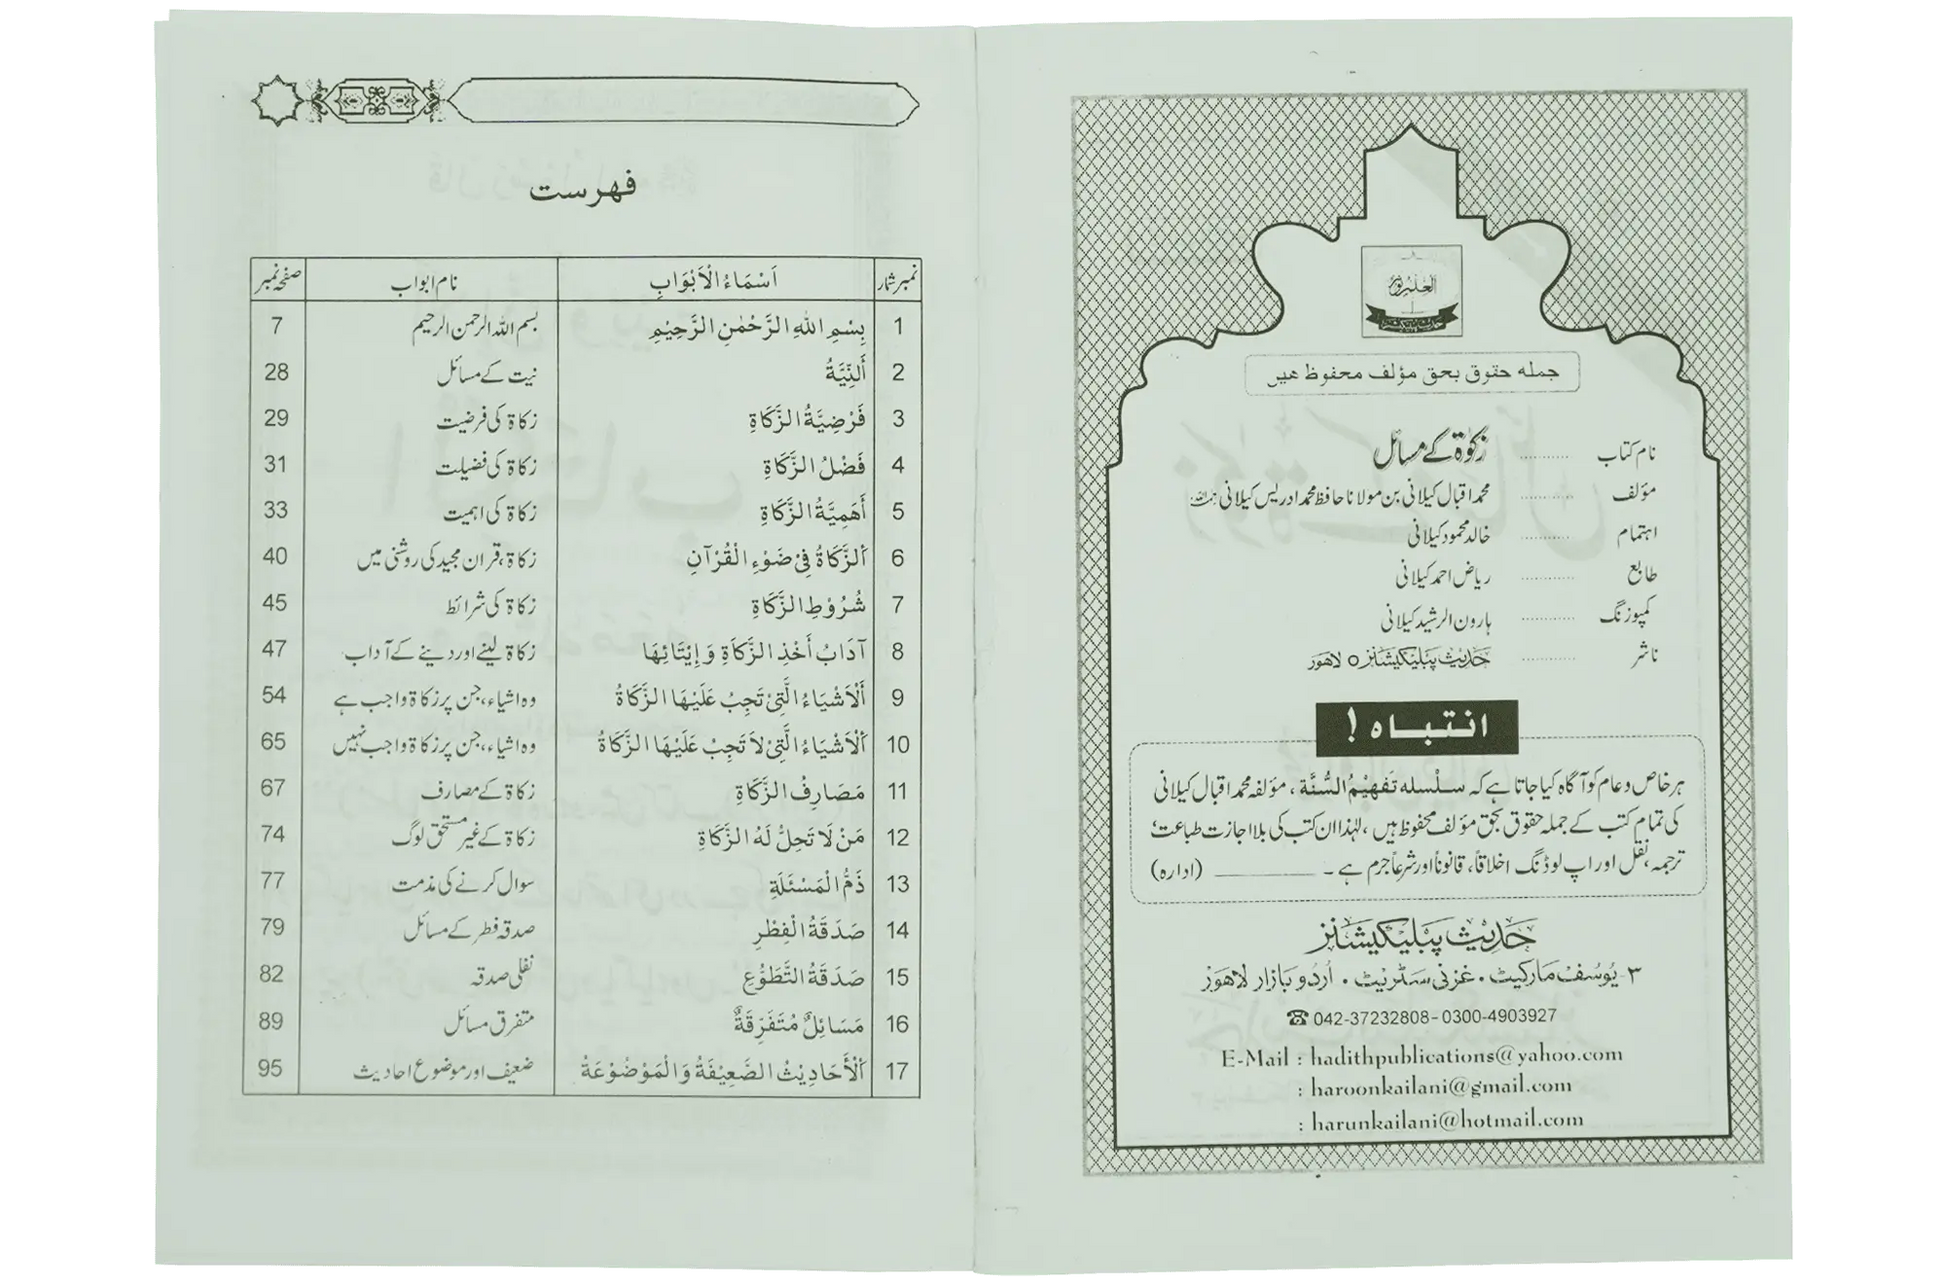 جملہ حقوق بحق مؤلف محفوظ ھیں
نام کتاب ........... زکوٰۃ کے مسائل
مؤلف ........... محمد اقبال کیلانی بن مولانا حافظ محمد ادریس کیلانی رحمہ اللہ
اہتمام ........... خالد محمود کیلانی
طابع ........... ریاض احمد کیلانی
کمپوزنگ ........... ہارون الرشید کیلانی
ناشر ........... حدیث پبلیکیشنز ○ لاہور
انتباہ !
ہر خاص و عام کو آگاہ کیا جاتا ہے کہ سلسلہ تَفْهِیْمُ السُّنَّة ، مؤلفہ محمد اقبال کیلانی
کی تمام کتب کے جملہ حقوق بحق مؤلف محفوظ ہیں ، لہٰذا ان کتب کی بلا اجازت طباعت،
ترجمہ، نقل اور اپ لوڈنگ اخلاقاً، قانوناً اور شرعاً جرم ہے ۔ ________ (ادارہ)
حدیث پبلیکیشنز
۳ یوسف مارکیٹ ۔ غزنی سٹریٹ ۔ اُردو بازار لاہور
☎ 042-37232808 - 0300-4903927
E-Mail : hadithpublications@yahoo.com
: haroonkailani@gmail.com
: harunkailani@hotmail.com
فہرست
نمبر شمار اَسْمَاءُ الْاَبْوَابِ نام ابواب صفحہ نمبر
1 بِسْمِ اللّٰهِ الرَّحْمٰنِ الرَّحِيْمِ بسم اللہ الرحمن الرحیم 7
2 أَلنِّيَّةُ نیت کے مسائل 28
3 فَرْضِيَّةُ الزَّكَاةِ زکاۃ کی فرضیت 29
4 فَضْلُ الزَّكَاةِ زکاۃ کی فضیلت 31
5 أَهَمِيَّةُ الزَّكَاةِ زکاۃ کی اہمیت 33
6 اَلزَّكَاةُ فِیْ ضَوْءِ الْقُرْآنِ زکاۃ، قران مجید کی روشنی میں 40
7 شُرُوْطِ الزَّكَاةِ زکاۃ کی شرائط 45
8 آدَابُ أَخْذِ الزَّكَاةِ وَإِيْتَائِهَا زکاۃ لینے اور دینے کے آداب 47
9 أَلْاَشْيَاءُ الَّتِیْ تَجِبُ عَلَيْهَا الزَّكَاةُ وہ اشیاء، جن پر زکاۃ واجب ہے 54
10 أَلْاَشْيَاءُ الَّتِیْ لَا تَجِبُ عَلَيْهَا الزَّكَاةُ وہ اشیاء، جن پر زکاۃ واجب نہیں 65
11 مَصَارِفُ الزَّكَاةِ زکاۃ کے مصارف 67
12 مَنْ لَا تَحِلُّ لَهُ الزَّكَاةِ زکاۃ کے غیر مستحق لوگ 74
13 ذَمُّ الْمَسْئَلَةِ سوال کرنے کی مذمت 77
14 صَدَقَةُ الْفِطْرِ صدقہ فطر کے مسائل 79
15 صَدَقَةُ التَّطَوُّعِ نفلی صدقہ 82
16 مَسَائِلٌ مُتَفَرِّقَةٌ متفرق مسائل 89
17 أَلْأَحَادِيْثُ الضَّعِيْفَةُ وَالْمَوْضُوْعَةُ ضعیف اور موضوع احادیث 95